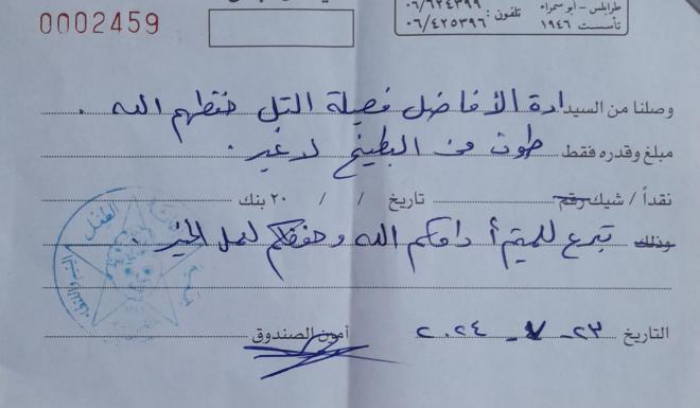 0002459
طرابلس - أبو سمراء
تأسست ١٩٤٦
تلفون: ٠٦/٤٢٥٣٩٦
وصلنا من السيدادة الأفاضل فصيلة التل حفظهم الله .
مبلغ وقدره فقط طون من البطيخ لا غير .
نقداً / شيك رقم تاريخ / / ٢٠ بنك
وذلك تبرع للميتم أدامكم الله وحفظكم لعمل الخير .
التاريخ ٢٣ - ٧ - ٢٠٢٤ أمين الصندوق